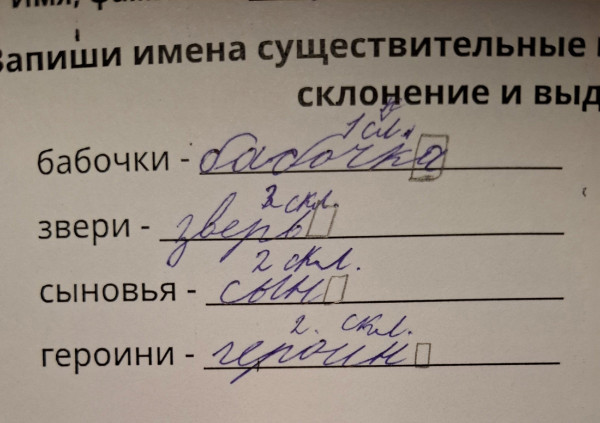 Имя,
Запиши имена существительные
склонение и выд
1 скл.
бабочки - бабочка
скл.
звери - зверь
2 скл.
сыновья - сын
2. скл.
героини - героин